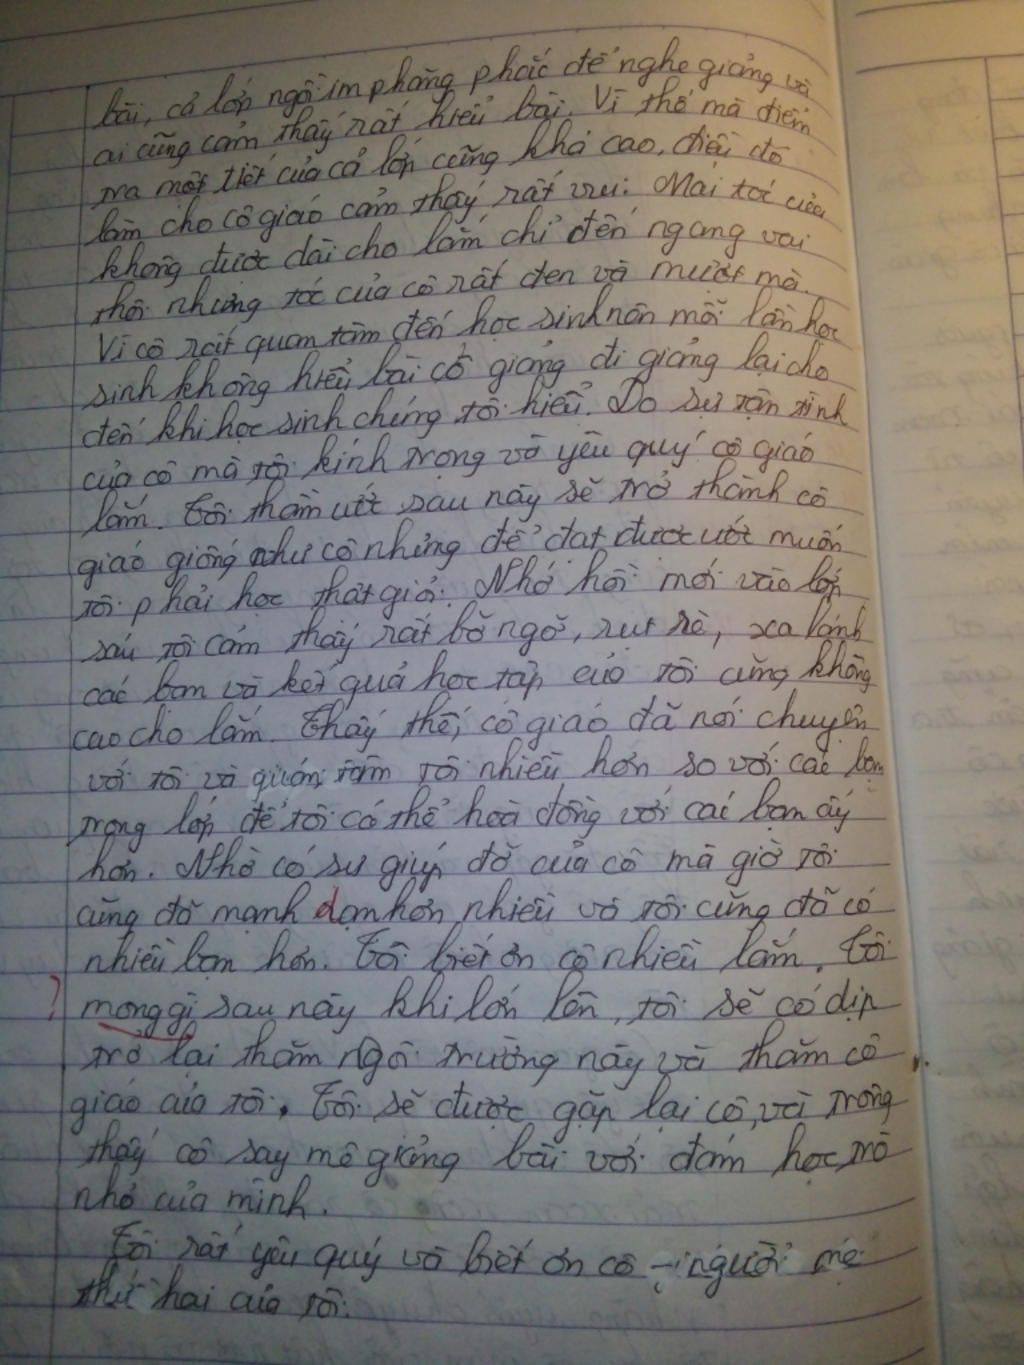 bài, cả lớp ngồi im phăng phắc để nghe giảng và
ai cũng cảm thấy rất hiểu bài. Vì thế mà điểm
ra một tiết của cả lớp cũng khá cao, điều đó
làm cho cô giáo cảm thấy rất vui. Mai tóc của
không được dài cho lắm chỉ đến ngang vai
thôi nhưng tóc của cô rất đen và mượt mà.
Vì cô rất quan tâm đến học sinh nên mỗi lần học
sinh không hiểu bài cô giảng đi giảng lại cho
đến khi học sinh chúng tôi hiểu. Do sự tận tình
của cô mà tôi kính trọng và yêu quý cô giáo
lắm. Tôi thầm ước sau này sẽ trở thành cô
giáo giống như cô nhưng để đạt được ước muốn
tôi phải học thật giỏi. Nhớ hồi mới vào lớp
sáu tôi cảm thấy rất bỡ ngỡ, rụt rè, xa lánh
các bạn và kết quả học tập của tôi cũng không
cao cho lắm. Thấy thế, cô giáo đã nói chuyện
với tôi và quan tâm tôi nhiều hơn so với các bạn
trong lớp để tôi có thể hoà đồng với các bạn ấy
hơn. Nhờ có sự giúp đỡ của cô mà giờ tôi
cũng đã mạnh dạn hơn nhiều và tôi cũng đã có
nhiều bạn hơn. Tôi biết ơn cô nhiều lắm. Tôi
? mong gì sau này khi lớn lên, tôi sẽ có dịp
trở lại thăm ngôi trường này và thăm cô
giáo của tôi. Tôi sẽ được gặp lại cô, và trông
thấy cô say mê giảng bài với đám học trò
nhỏ của mình.
Tôi rất yêu quý và biết ơn cô - người mẹ
thứ hai của tôi.